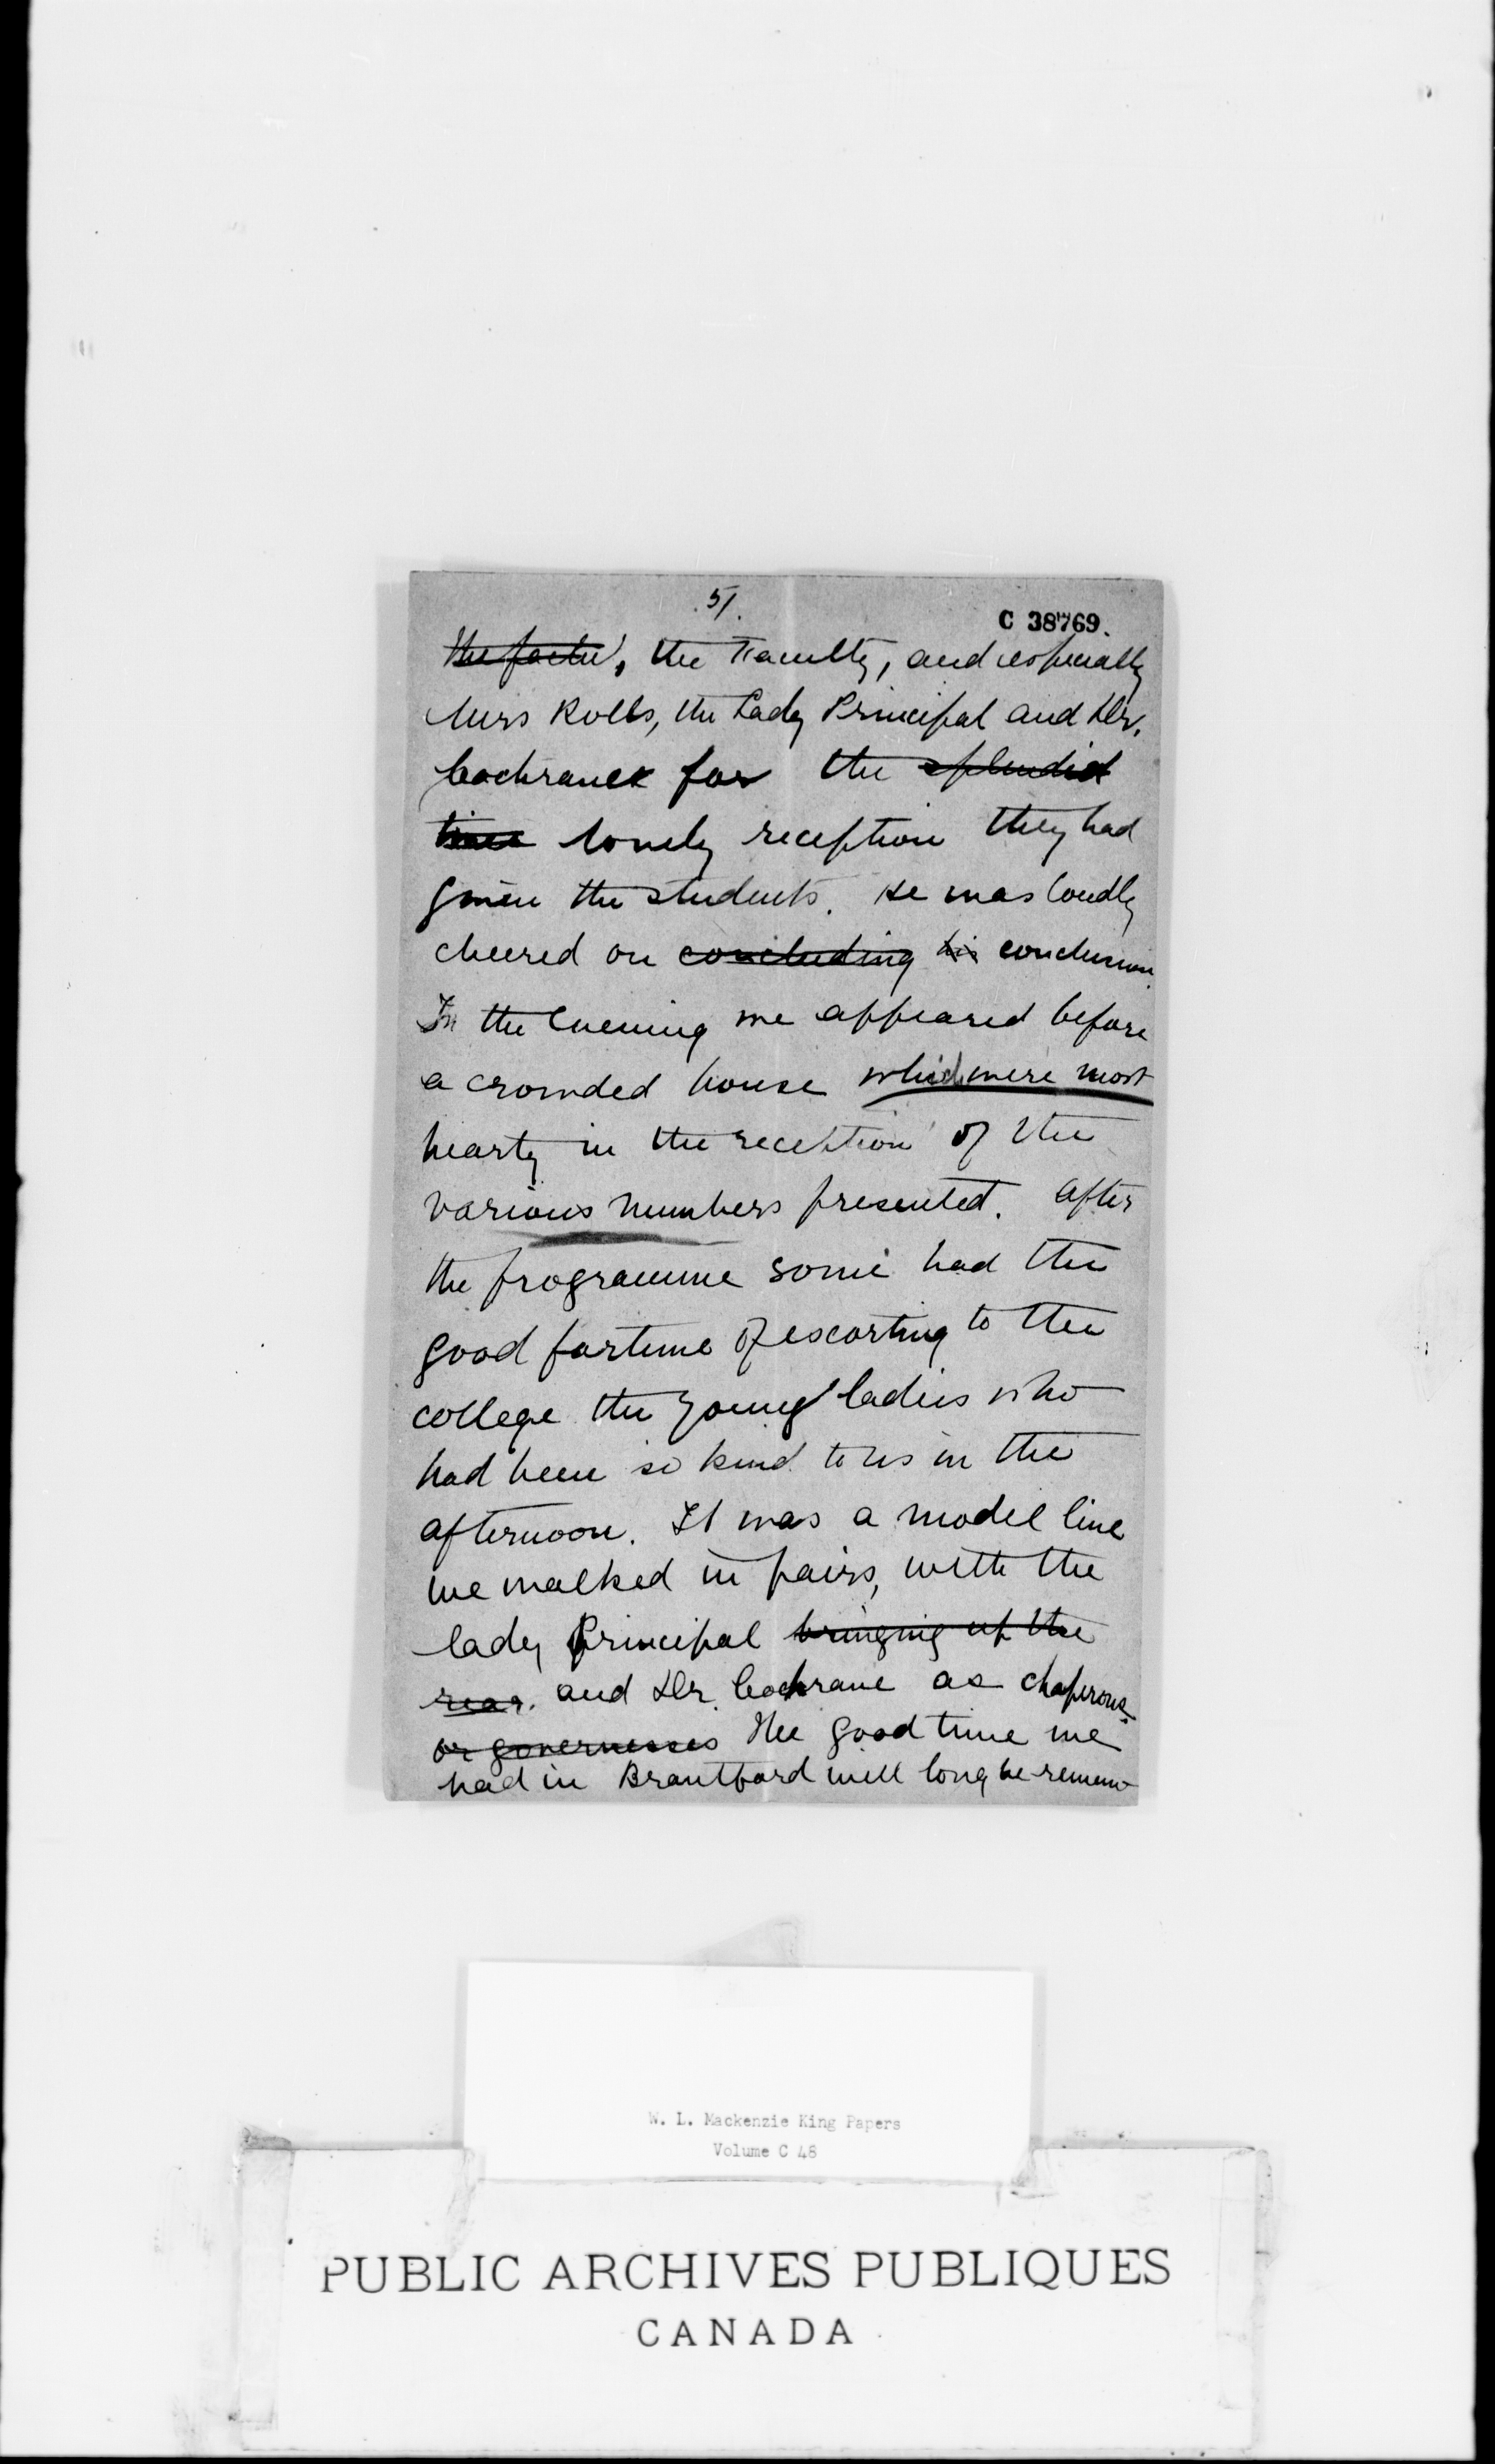 5/.
C 38769.
the facu, the Faculty, and especially
Miss Rolls, the Lady Principal and Dr.
Cochrane for the splendid
time lovely reception they had
given the students. He was loudly
cheered on concluding his conclusion.
In the evening we appeared before
a crowded house which were most
hearty in the reception of the
various numbers presented. After
the programme some had the
good fortune of escorting to the
college the young ladies who
had been so kind to us in the
afternoon. It was a model line
we walked in pairs, with the
lady Principal bringing up the
rear. and Dr. Cochrane as chaperons.
or governesses The good time we
had in Brantford will long be remem
W. L. Mackenzie King Papers
Volume C 48
PUBLIC ARCHIVES PUBLIQUES
CANADA